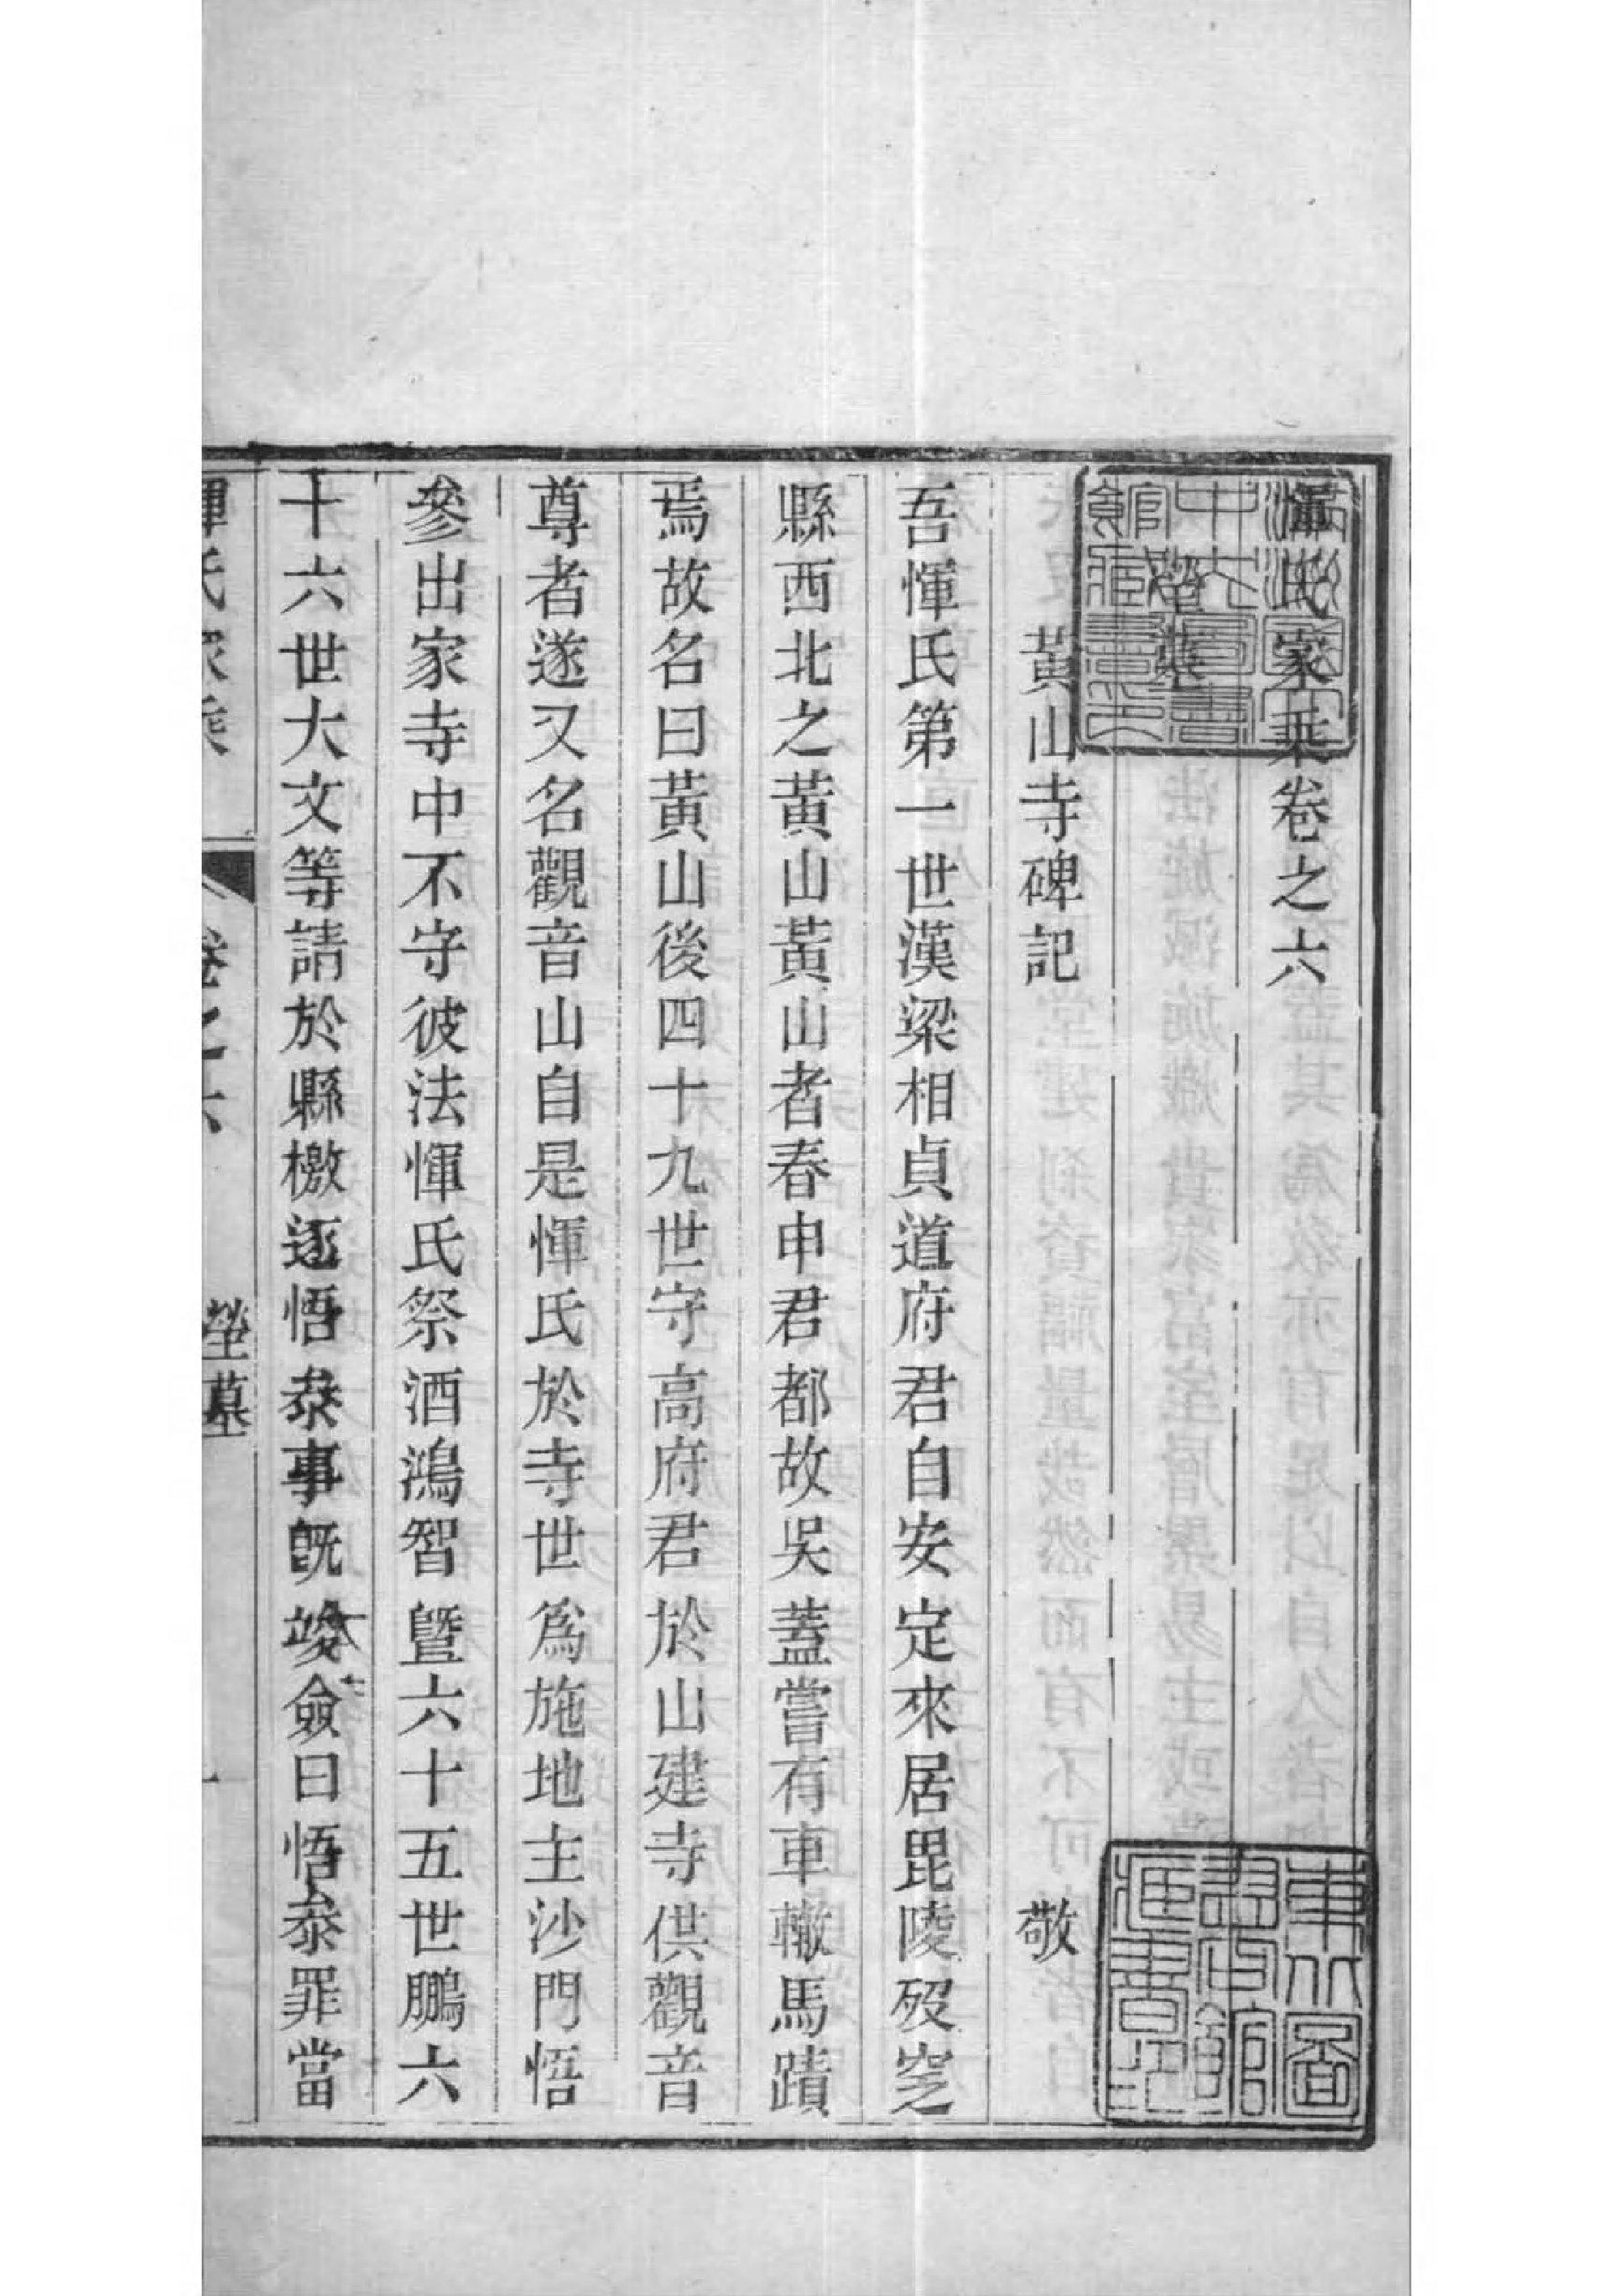 惲氏家乘卷之六
塋墓
黃山寺碑記 敬
吾惲氏第一世漢梁相貞道府君自安定來居毘陵歿窆之
縣西北之黃山黃山者春申君都故吳蓋嘗有車轍馬蹟
焉故名曰黃山後四十九世守高府君於山建寺供觀音
尊者遂又名觀音山自是惲氏於寺世爲施地主沙門悟
叅出家寺中不守彼法惲氏祭酒鴻智曁六十五世鵬六
十六世大文等請於縣檄逐悟叅事旣竣僉曰悟叅罪當
惲氏家乘 卷之六 塋墓 一